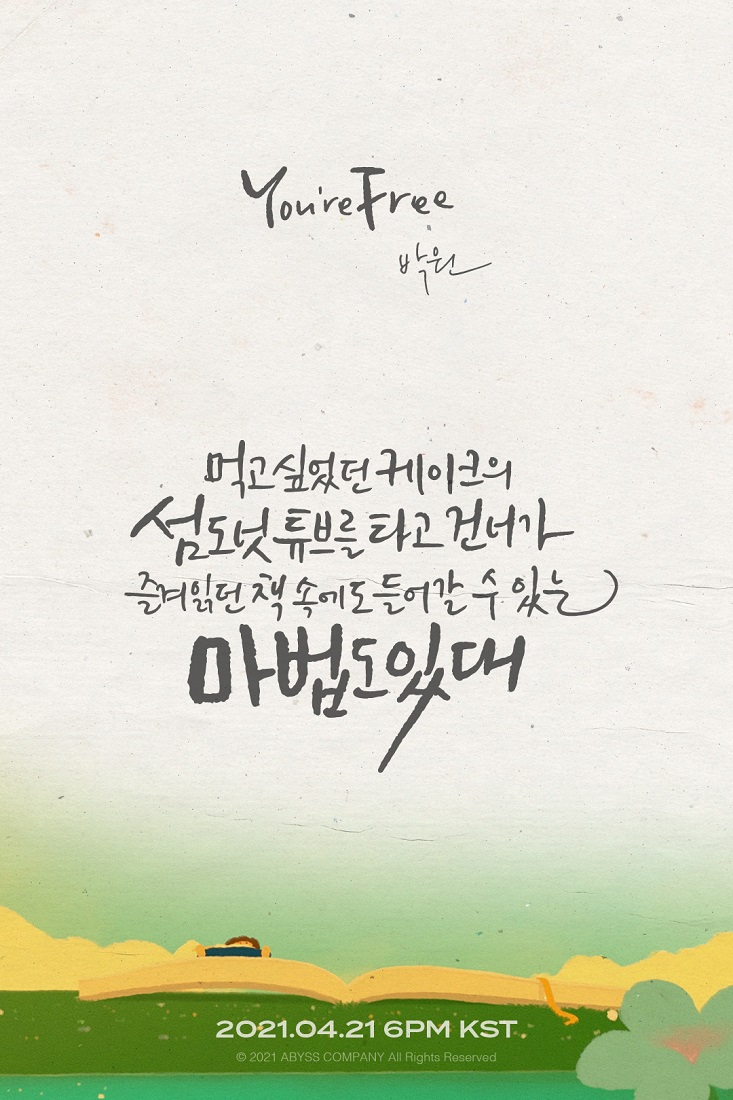 You're Free
박원
먹고 싶었던 케이크의
섬 도넛 튜브를 타고 건너가
즐겨읽던 책 속에도 들어갈 수 있는
마법도 있대
2021.04.21 6PM KST
© 2021 ABYSS COMPANY All Rights Reserved